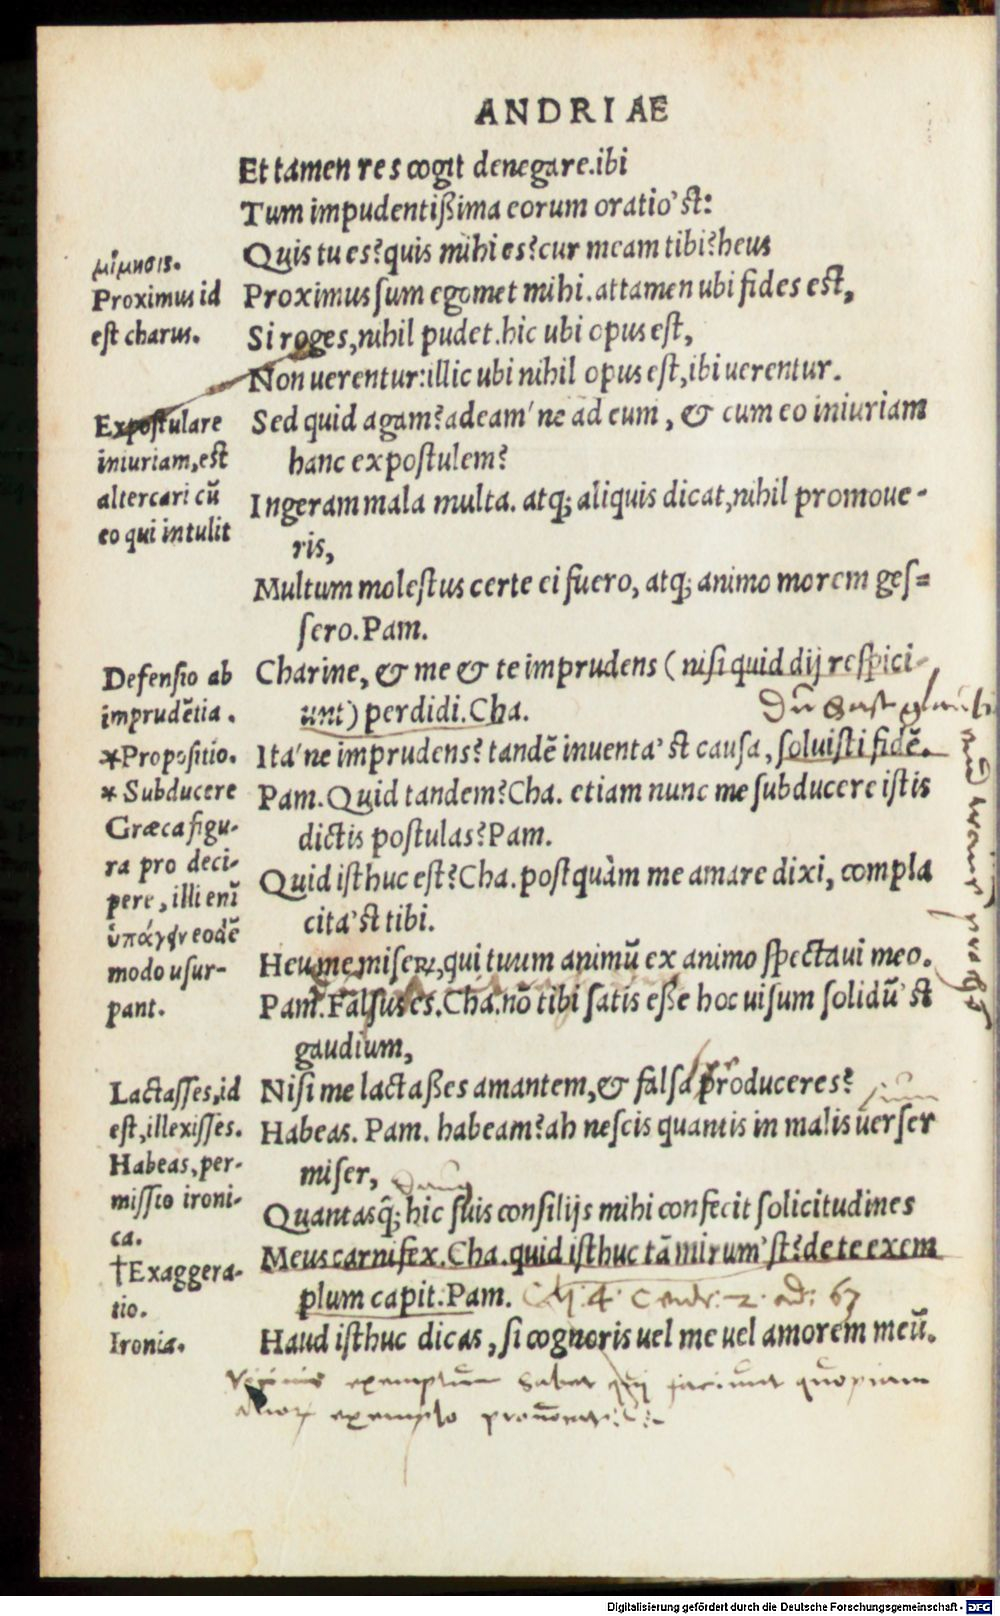 ANDRIAE
Et tamen res cogit denegare. ibi
Tum impudentißima eorum oratio'st:
Quis tu es? quis mihi es? cur meam tibi? heus
Proximus sum egomet mihi. attamen ubi fides est,
Si roges, nihil pudet. hic ubi opus est,
Non uerentur: illic ubi nihil opus est, ibi uerentur.
Sed quid agam? adeam'ne ad eum, & cum eo iniuriam
hanc expostulem?
Ingeram mala multa. atq; aliquis dicat, nihil promoue-
ris,
Multum molestus certe ei fuero, atq; animo morem ges=
sero. Pam.
Charine, & me & te imprudens (nisi quid dij respici-
unt) perdidi. Cha.
Ita'ne imprudens? tandẽ inuenta'st causa, soluisti fidẽ.
Pam. Quid tandem? Cha. etiam nunc me subducere istis
dictis postulas? Pam.
Quid isthuc est? Cha. postquàm me amare dixi, compla
cita'st tibi.
Heu me miseꝝ, qui tuum animũ ex animo spectaui meo.
Pam. Falsus es. Cha. nõ tibi satis eße hoc uisum solidũ'st
gaudium,
Nisi me lactaßes amantem, & falsa produceres?
Habeas. Pam. habeam? ah nescis quantis in malis uerser
miser,
Quantasq̃; hic suis consilijs mihi confecit solicitudines
Meus carnifex. Cha. quid isthuc tã mirum'st? de te exem
plum capit. Pam.
Haud isthuc dicas, si cognoris uel me uel amorem meũ.
μίμησις.
Proximus id
est charus.
Expostulare
iniuriam, est
altercari cũ
eo qui intulit
Defensio ab
imprudẽtia.
*Propositio.
* Subducere
Græca figu-
ra pro deci-
pere, illi enĩ
ὑπάγειν eodẽ
modo usur-
pant.
Lactasses, id
est, illexisses.
Habeas, per-
missio ironi-
ca.
†Exaggera-
tio.
Ironia.
sum
exemplum habet qui faciunt quopiam
exemplo
Digitalisierung gefördert durch die Deutsche Forschungsgemeinschaft - DFG